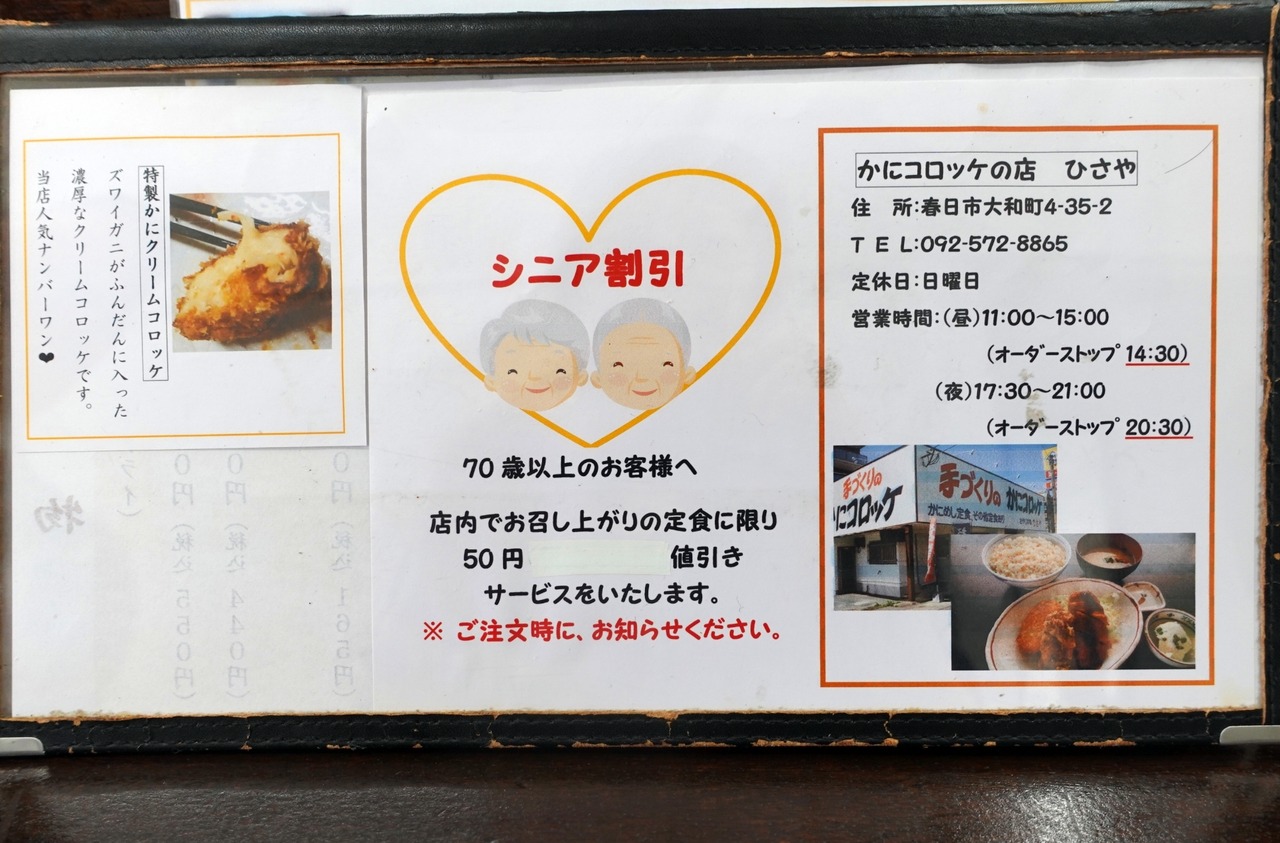 特製かにクリームコロッケ
ズワイガニがふんだんに入った
濃厚なクリームコロッケです。
当店人気ナンバーワン❤
シニア割引
70歳以上のお客様へ
店内でお召し上がりの定食に限り
50円 値引き
サービスをいたします。
※ ご注文時に、お知らせください。
かにコロッケの店 ひさや
住 所:春日市大和町4-35-2
TEL:092-572-8865
定休日:日曜日
営業時間:(昼)11:00～15:00
(オーダーストップ 14:30)
(夜)17:30～21:00
(オーダーストップ 20:30)
手づくりの
かにコロッケ
手づくりの
かにコロッケ
かにめし定食
0円(税込165円)
0円(税込440円)
0円(税込550円)
ライ)
物